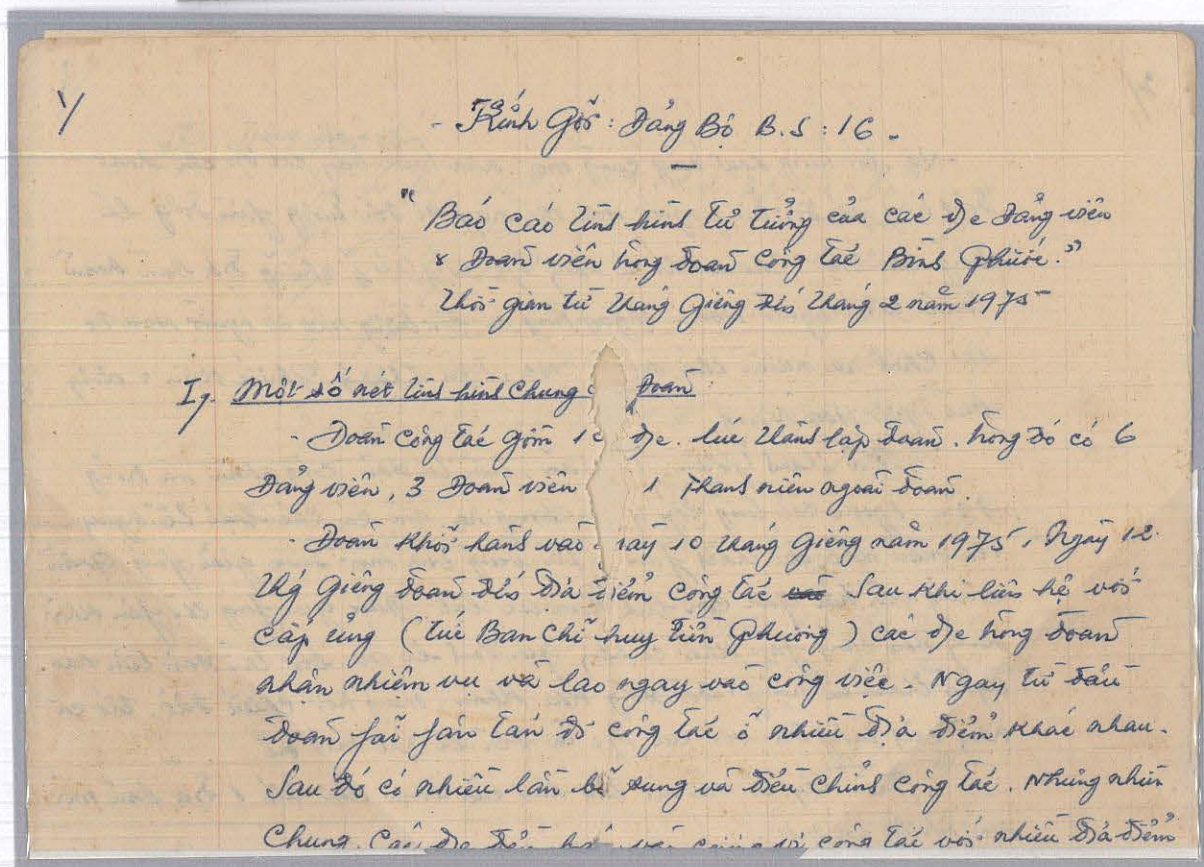 1/
- Kính Gởi: Đảng Bộ B.S: 16 -
" Báo cáo tình hình tư tưởng của các đ/c Đảng viên
& Đoàn viên trong đoàn công tác Bình Phước."
Thời gian từ tháng Giêng đến tháng 2 năm 1975
I/. Một số nét tình hình chung Đoàn
- Đoàn công tác gồm 1 đ/c. lúc thành lập đoàn. trong đó có 6
Đảng viên, 3 Đoàn viên 1 thanh niên ngoài đoàn.
- Đoàn khởi hành vào 10 tháng Giêng năm 1975, Ngày 12
thg Giêng đoàn đến địa điểm công tác Sau khi liên hệ với
cấp ủng (tức Ban chỉ huy tiền phương) các đ/c trong đoàn
nhận nhiệm vụ và lao ngay vào công việc. Ngay từ đầu
đoàn fải fân tán đi công tác ở nhiều địa điểm khác nhau.
Sau đó có nhiều lần bổ sung và điều chỉnh công tác. Nhưng nhìn
Chung. Các đ/c công tác với nhiều địa điểm